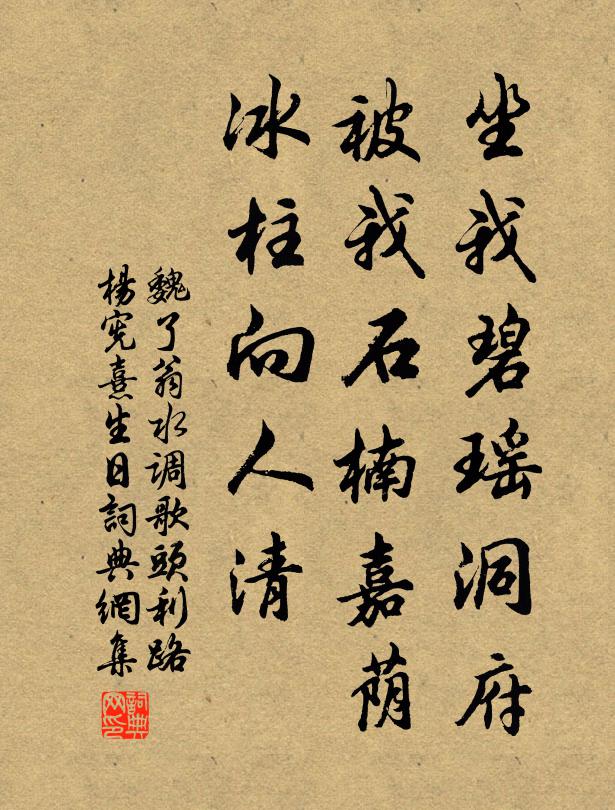 坐我碧瑶洞府
被我石楠嘉荫
冰柱向人清
魏了翁水调歌頭利路
楊宪熹生日詞典網集
詞典网印